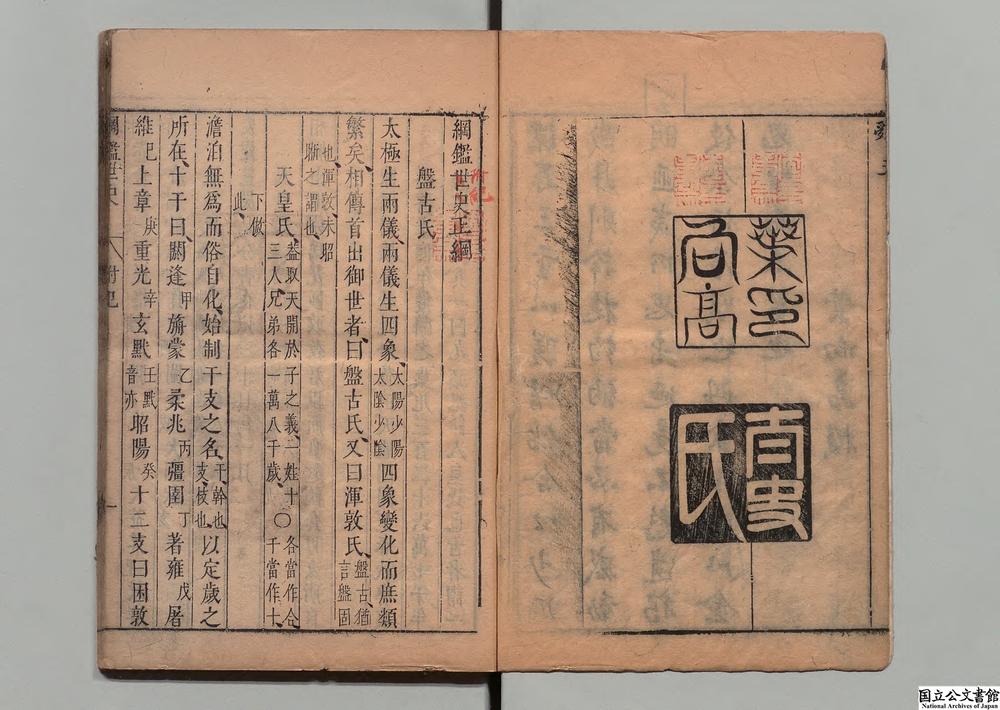 葉印
向高
太史
氏
綱鑑世史正綱
盤古氏
太極生兩儀、兩儀生四象、太陽少陽太陰少陰四象變化而庶類
繁矣、相傳首出御世者、曰盤古氏、又曰渾敦氏、盤古、猶言盤固
也、渾敦、未昭晰之謂也、
天皇氏、葢取天開於子之義、二姓十三人、兄弟各一萬八千歲、○各當作合、千當作十、
下倣此、
澹泊無爲而俗自化、始制干支之名、干幹也、支枝也、以定歲之
所在、十干曰、閼逢甲旃蒙乙柔兆丙彊圉丁著雍戊屠
維巳上章庚重光辛玄黓壬黓音亦昭陽癸十二支曰困敦
綱鑑世史 附紀 一
国立公文書館
National Archives of Japan